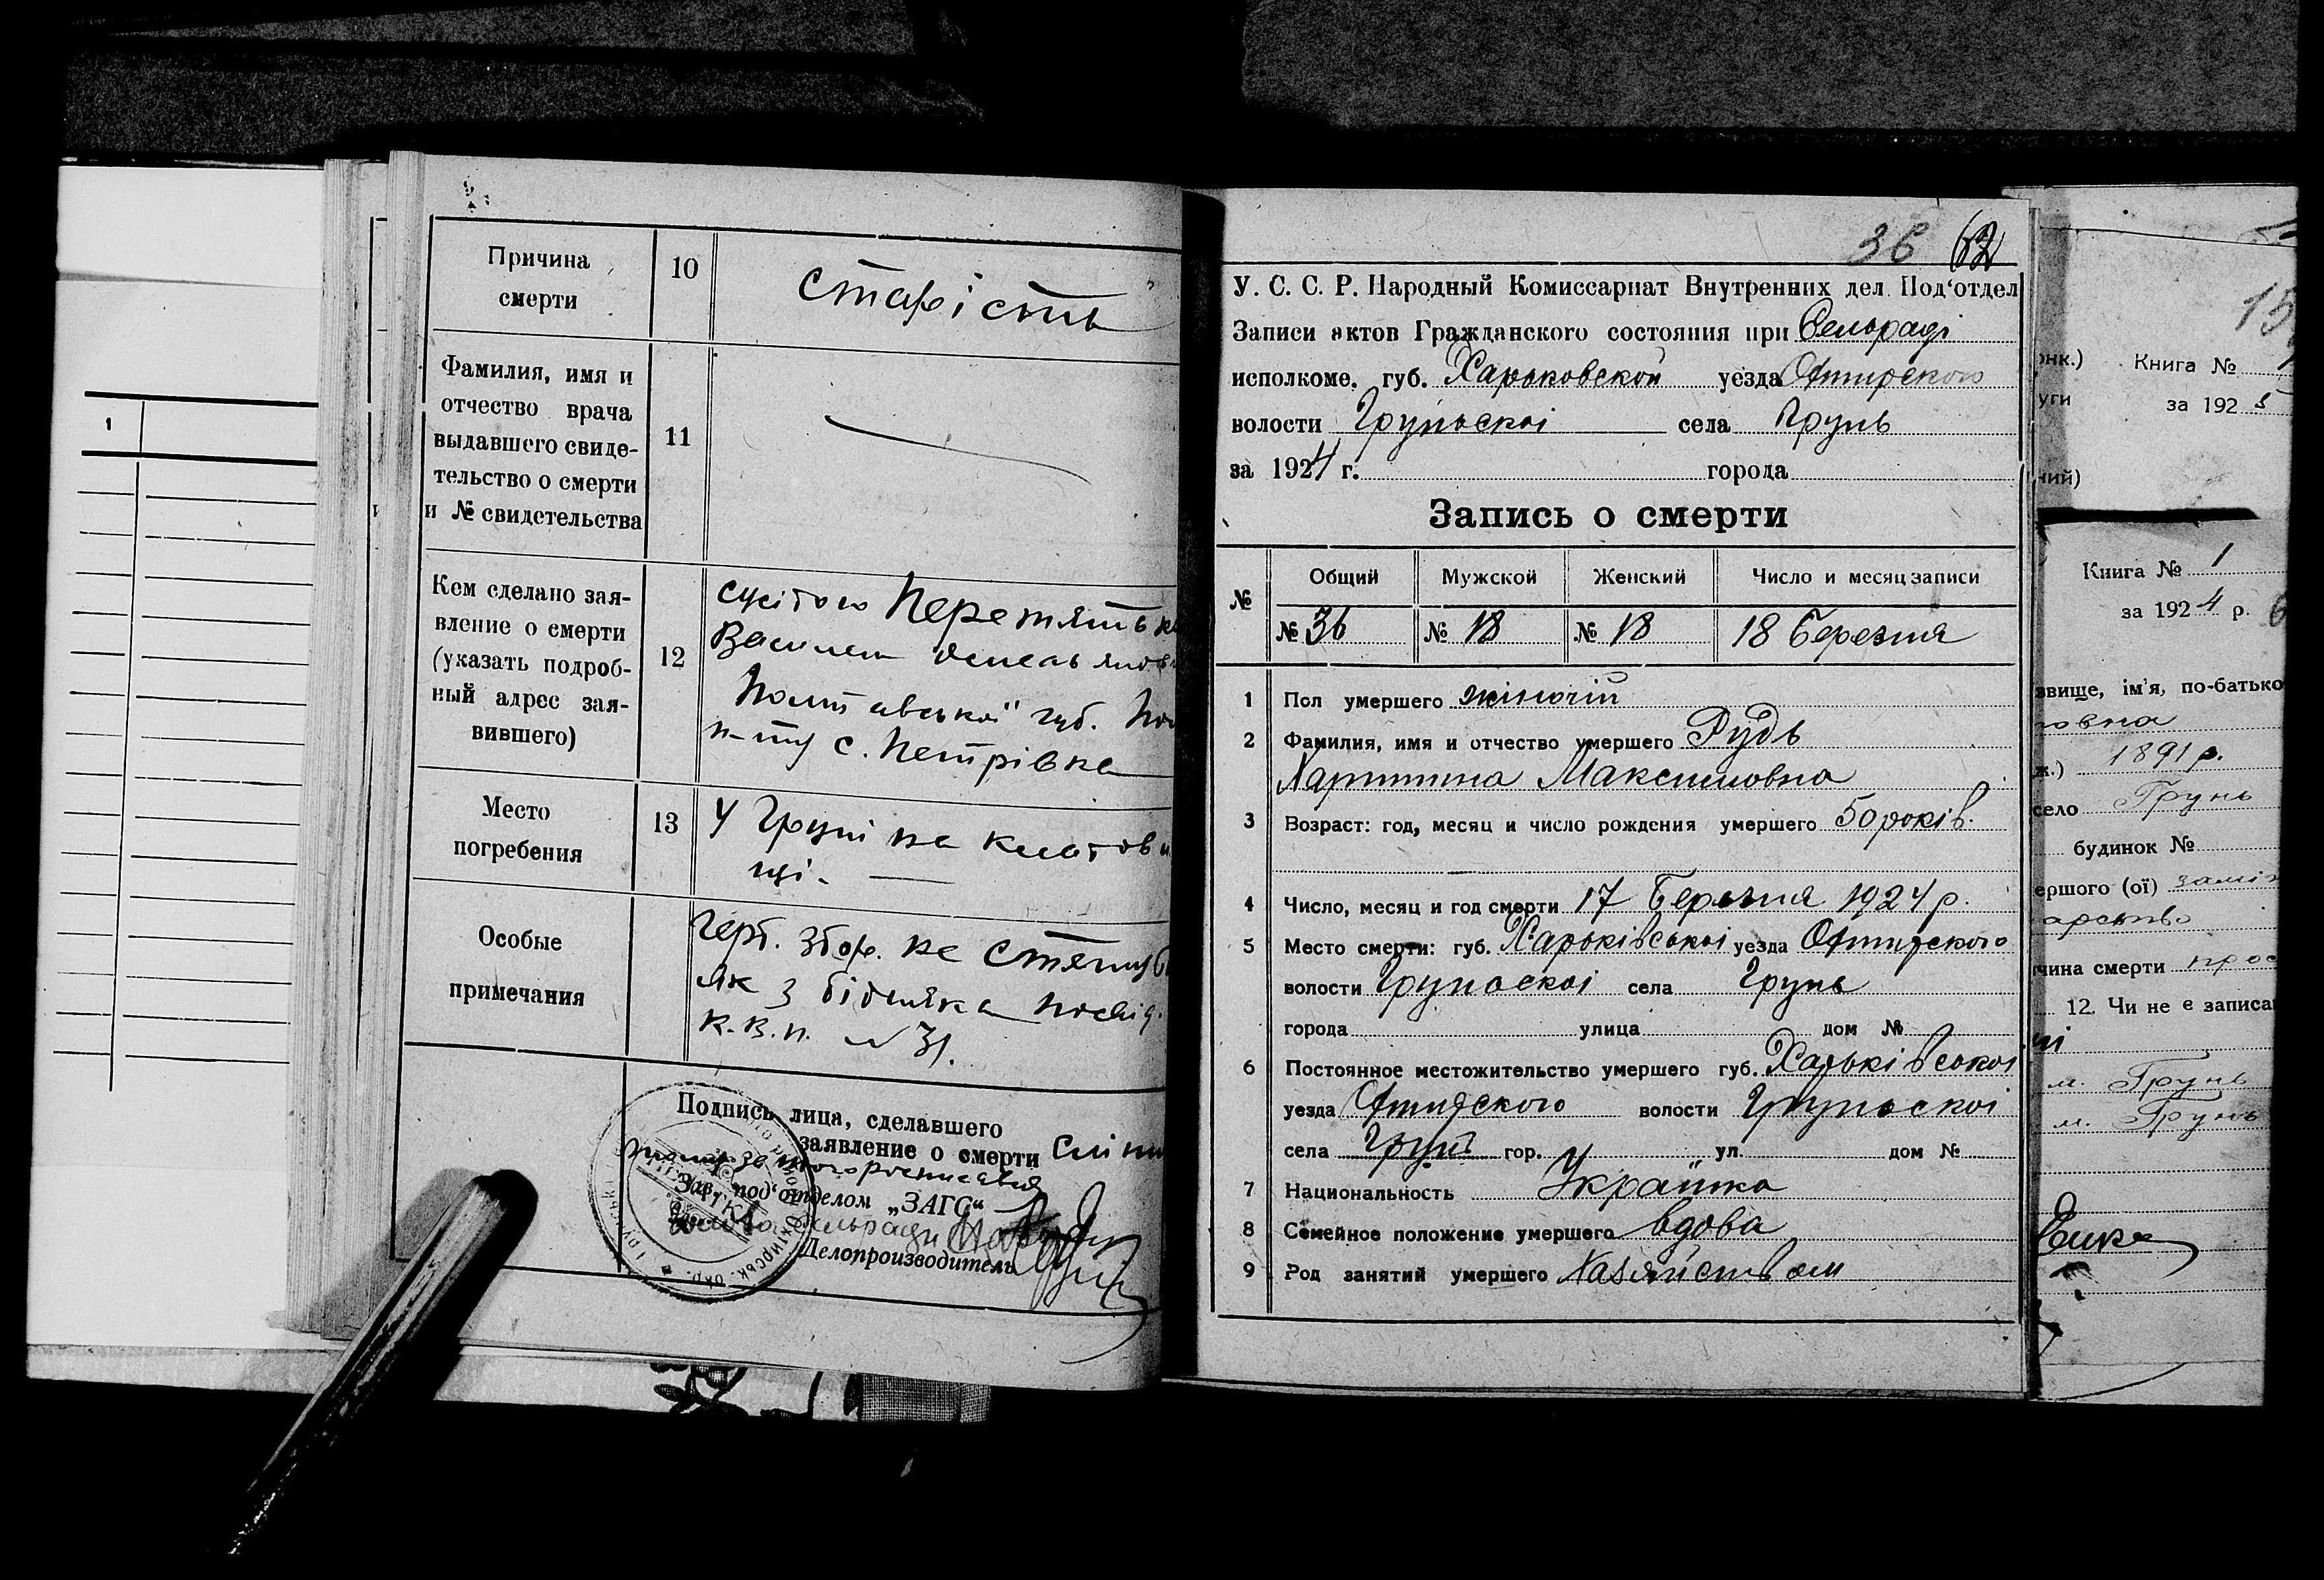 1
Причина
смерти
10
старість
Фамилия, имя и
отчество врача
выдавшего свиде-
тельство о смерти
и № свидетельства
11
Кем сделано зая-
вление о смерти
(указать подроб-
ный адрес зая-
вившего)
12
Перетять
Василем
Полтавської губ.
с. Петрівка
Место
погребения
13
У Груні на
щі.
Особые
примечания
герб. збор. не
як з бідняка
К.В.П. № 31.
Подпись лица, сделавшего
заявление о смерти
Зав. под'отделом „ЗАГС“
Делопроизводитель
36 62
У. С. С. Р. Народный Комиссариат Внутренних дел Под'отдел
Записи актов Гражданского состояния при Сельраді
исполкоме. губ. Харьковской уезда Охтирского
волости Груньскоі села Грунь
за 1924 г. города
Запись о смерти
№ Общий Мужской Женский Число и месяц записи
№ 36 № 18 № 18 18 Березня
1 Пол умершего жіночій
2 Фамилия, имя и отчество умершего Рудь
Харитина Максимовна
3 Возраст: год, месяц и число рождения умершего 50 років.
4 Число, месяц и год смерти 17 Березня 1924 р.
5 Место смерти: губ. Харьківськоі уезда Охтирского
волости Груньскоі села Грунь
города улица дом №
6 Постоянное местожительство умершего губ. Харьківськоі
уезда Охтирского волости Груньскоі
села Грунь гор. ул. дом №
7 Национальность Украінка
8 Семейное положение умершего вдова
9 Род занятий умершего Хазяйством
15
Книга №
за 192
Книга № 1
за 1924 р.
звище, ім'я, по-батько
овна
1891 р.
село Грунь
будинок №
ершого (ої) замі
арство
чина смерти
12. Чи не є записа
м. Грунь
м. Грунь